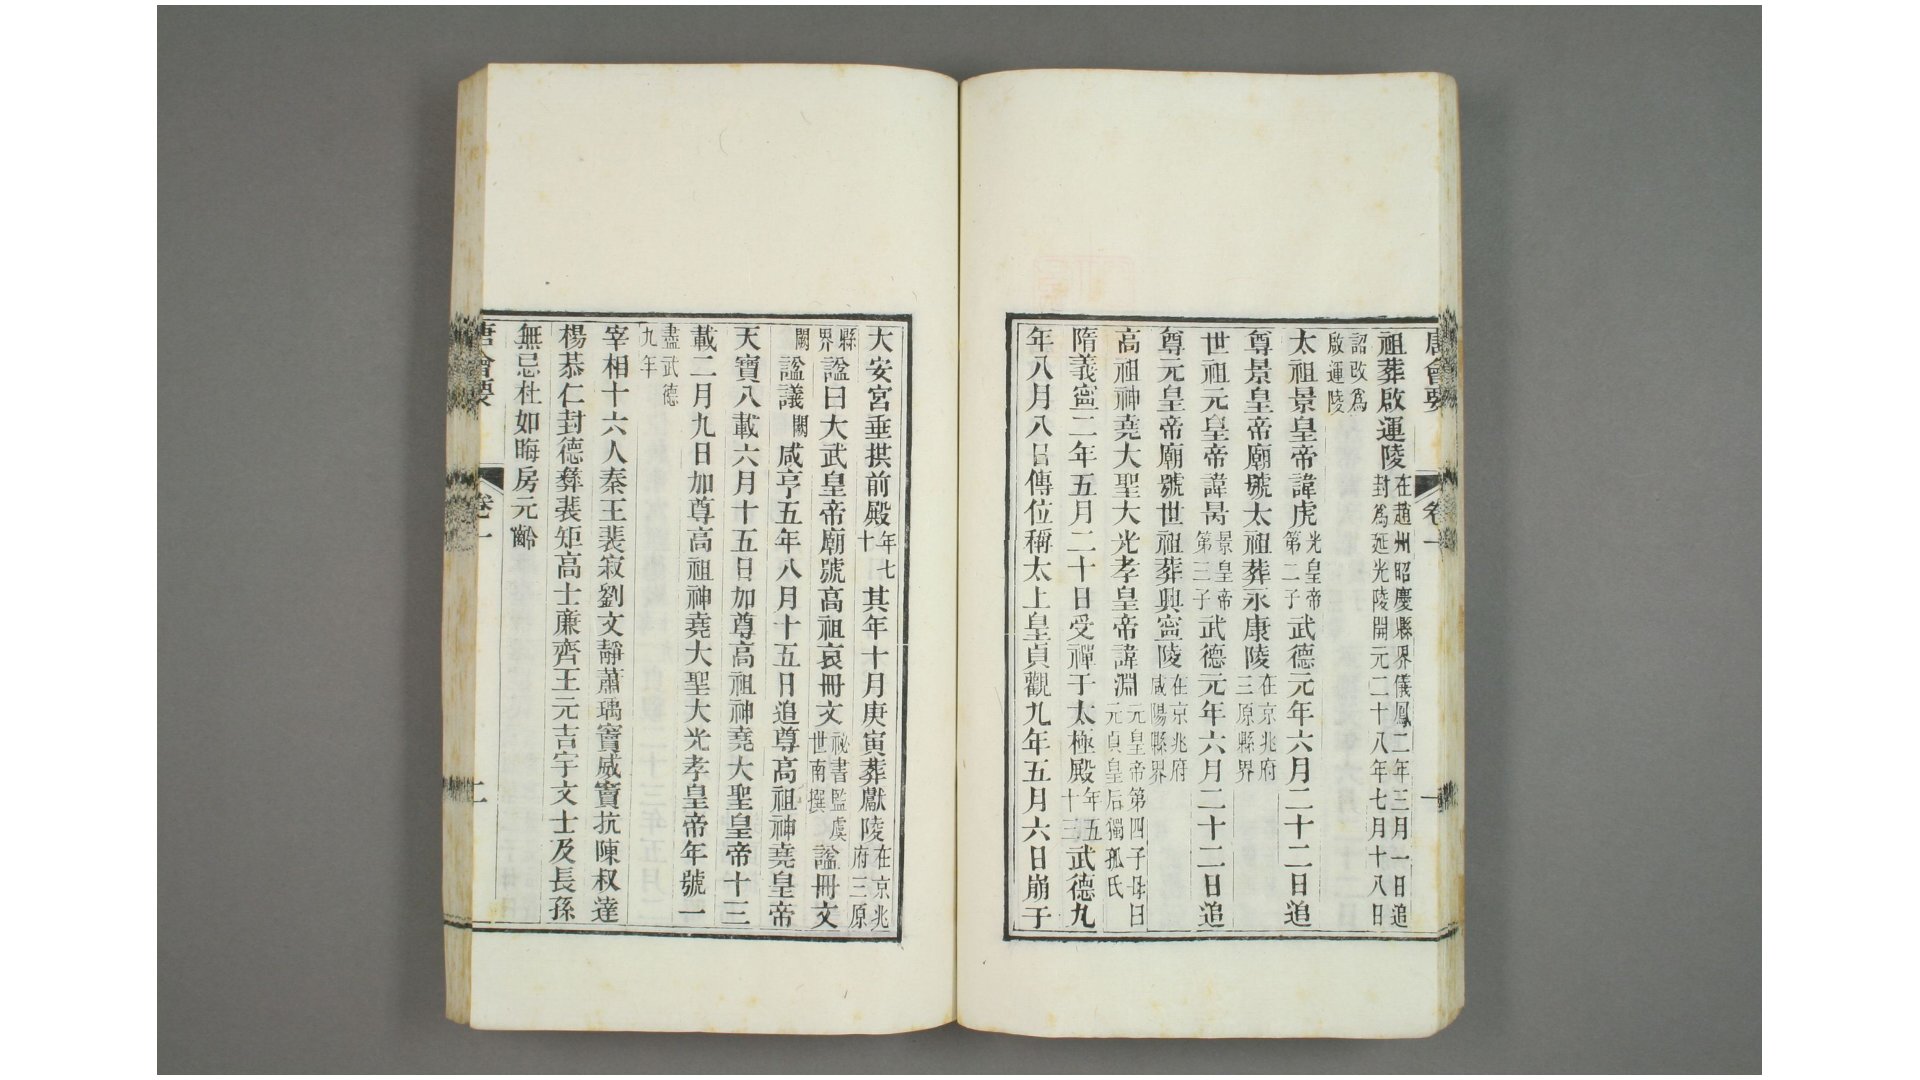 唐會要 卷一 一
祖葬啟運陵在趙州昭慶縣界儀鳳二年三月一日追封為延光陵開元二十八年七月十八日
詔改為啟運陵
太祖景皇帝諱虎光皇帝第二子武德元年六月二十二日追
尊景皇帝廟號太祖葬永康陵在京兆府三原縣界
世祖元皇帝諱昺景皇帝第三子武德元年六月二十二日追
尊元皇帝廟號世祖葬興寧陵在京兆府咸陽縣界
高祖神堯大聖大光孝皇帝諱淵元皇帝第四子母曰元貞皇后獨孤氏
隋義寧二年五月二十日受禪于太極殿年五十三武德九
年八月八日傳位稱太上皇貞觀九年五月六日崩于
大安宮垂拱前殿年七十其年十月庚寅葬獻陵在京兆府三原
縣界諡曰大武皇帝廟號高祖哀冊文祕書監虞世南撰諡冊文
闕諡議闕咸亨五年八月十五日追尊高祖神堯皇帝
天寶八載六月十五日加尊高祖神堯大聖皇帝十三
載二月九日加尊高祖神堯大聖大光孝皇帝年號一
盡武德九年
宰相十六人秦王裴寂劉文靜蕭瑀竇威竇抗陳叔達
楊恭仁封德彝裴矩高士廉齊王元吉宇文士及長孫
無忌杜如晦房元齡
唐會要 卷一 二